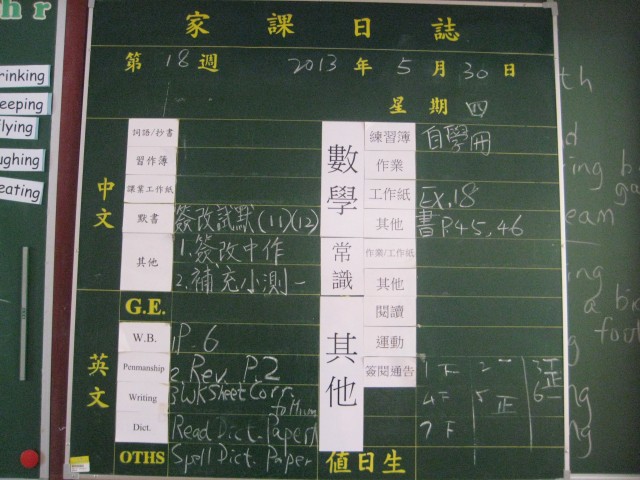 家課日誌
第 18 週 2013 年 5 月 30 日
星期 四
中文
詞語/抄書
習作簿
課業工作紙
默書 簽改試默(11)(12)
其他 1.簽改中作
2.補充小測一
英文
G.E.
W.B. P.6
Penmanship 2. Rev. P.2
Writing 3 WKSheet Corr.
to Mum
Dict. Read Dict. Paper
OTHS Spell Dict. Paper
數學
練習簿 自學冊
作業
工作紙 Ex.18
其他 書P.45,46
常識
作業/工作紙
其他
其他
閱讀
運動
簽閱通告 1下 2一 3正
4下 5正 6一
7下
值日生
hr
rinking
eeping
lying
ughing
eating
th
ing
eam
ing
a
ng
ng